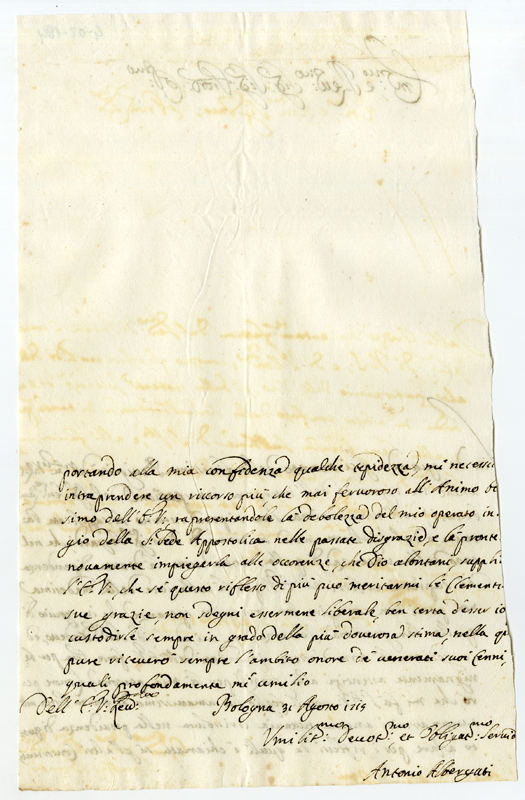 portando alla mia confidenza qualche tepidezza, mi necessi
intraprendere un ricorso più che mai fervoroso all'Animo be
simo dell'E. V., rapresentandole la debolezza del mio operato in
gio della S. Sede Appostolica nelle passate disgrazie, e la pronte
novamente impiegarla alle occorenze, che Dio alontani, suppli
l'E. V., che se questo riflesso di più può meritarmi le Clementi
sue grazie, non sdegni essermene liberale, ben certa d'esser io
custodirle sempre in grado della più doverosa stima, nella qu
pure riceverò sempre l'ambito onore de venerati suoi Cenni,
quali profondamente mi umilio
Dell'E. V. Rev:
Bologna 31 Agosto
Umilit:mo Devot:mo et Obligat:mo Servid
Antonio Albergati